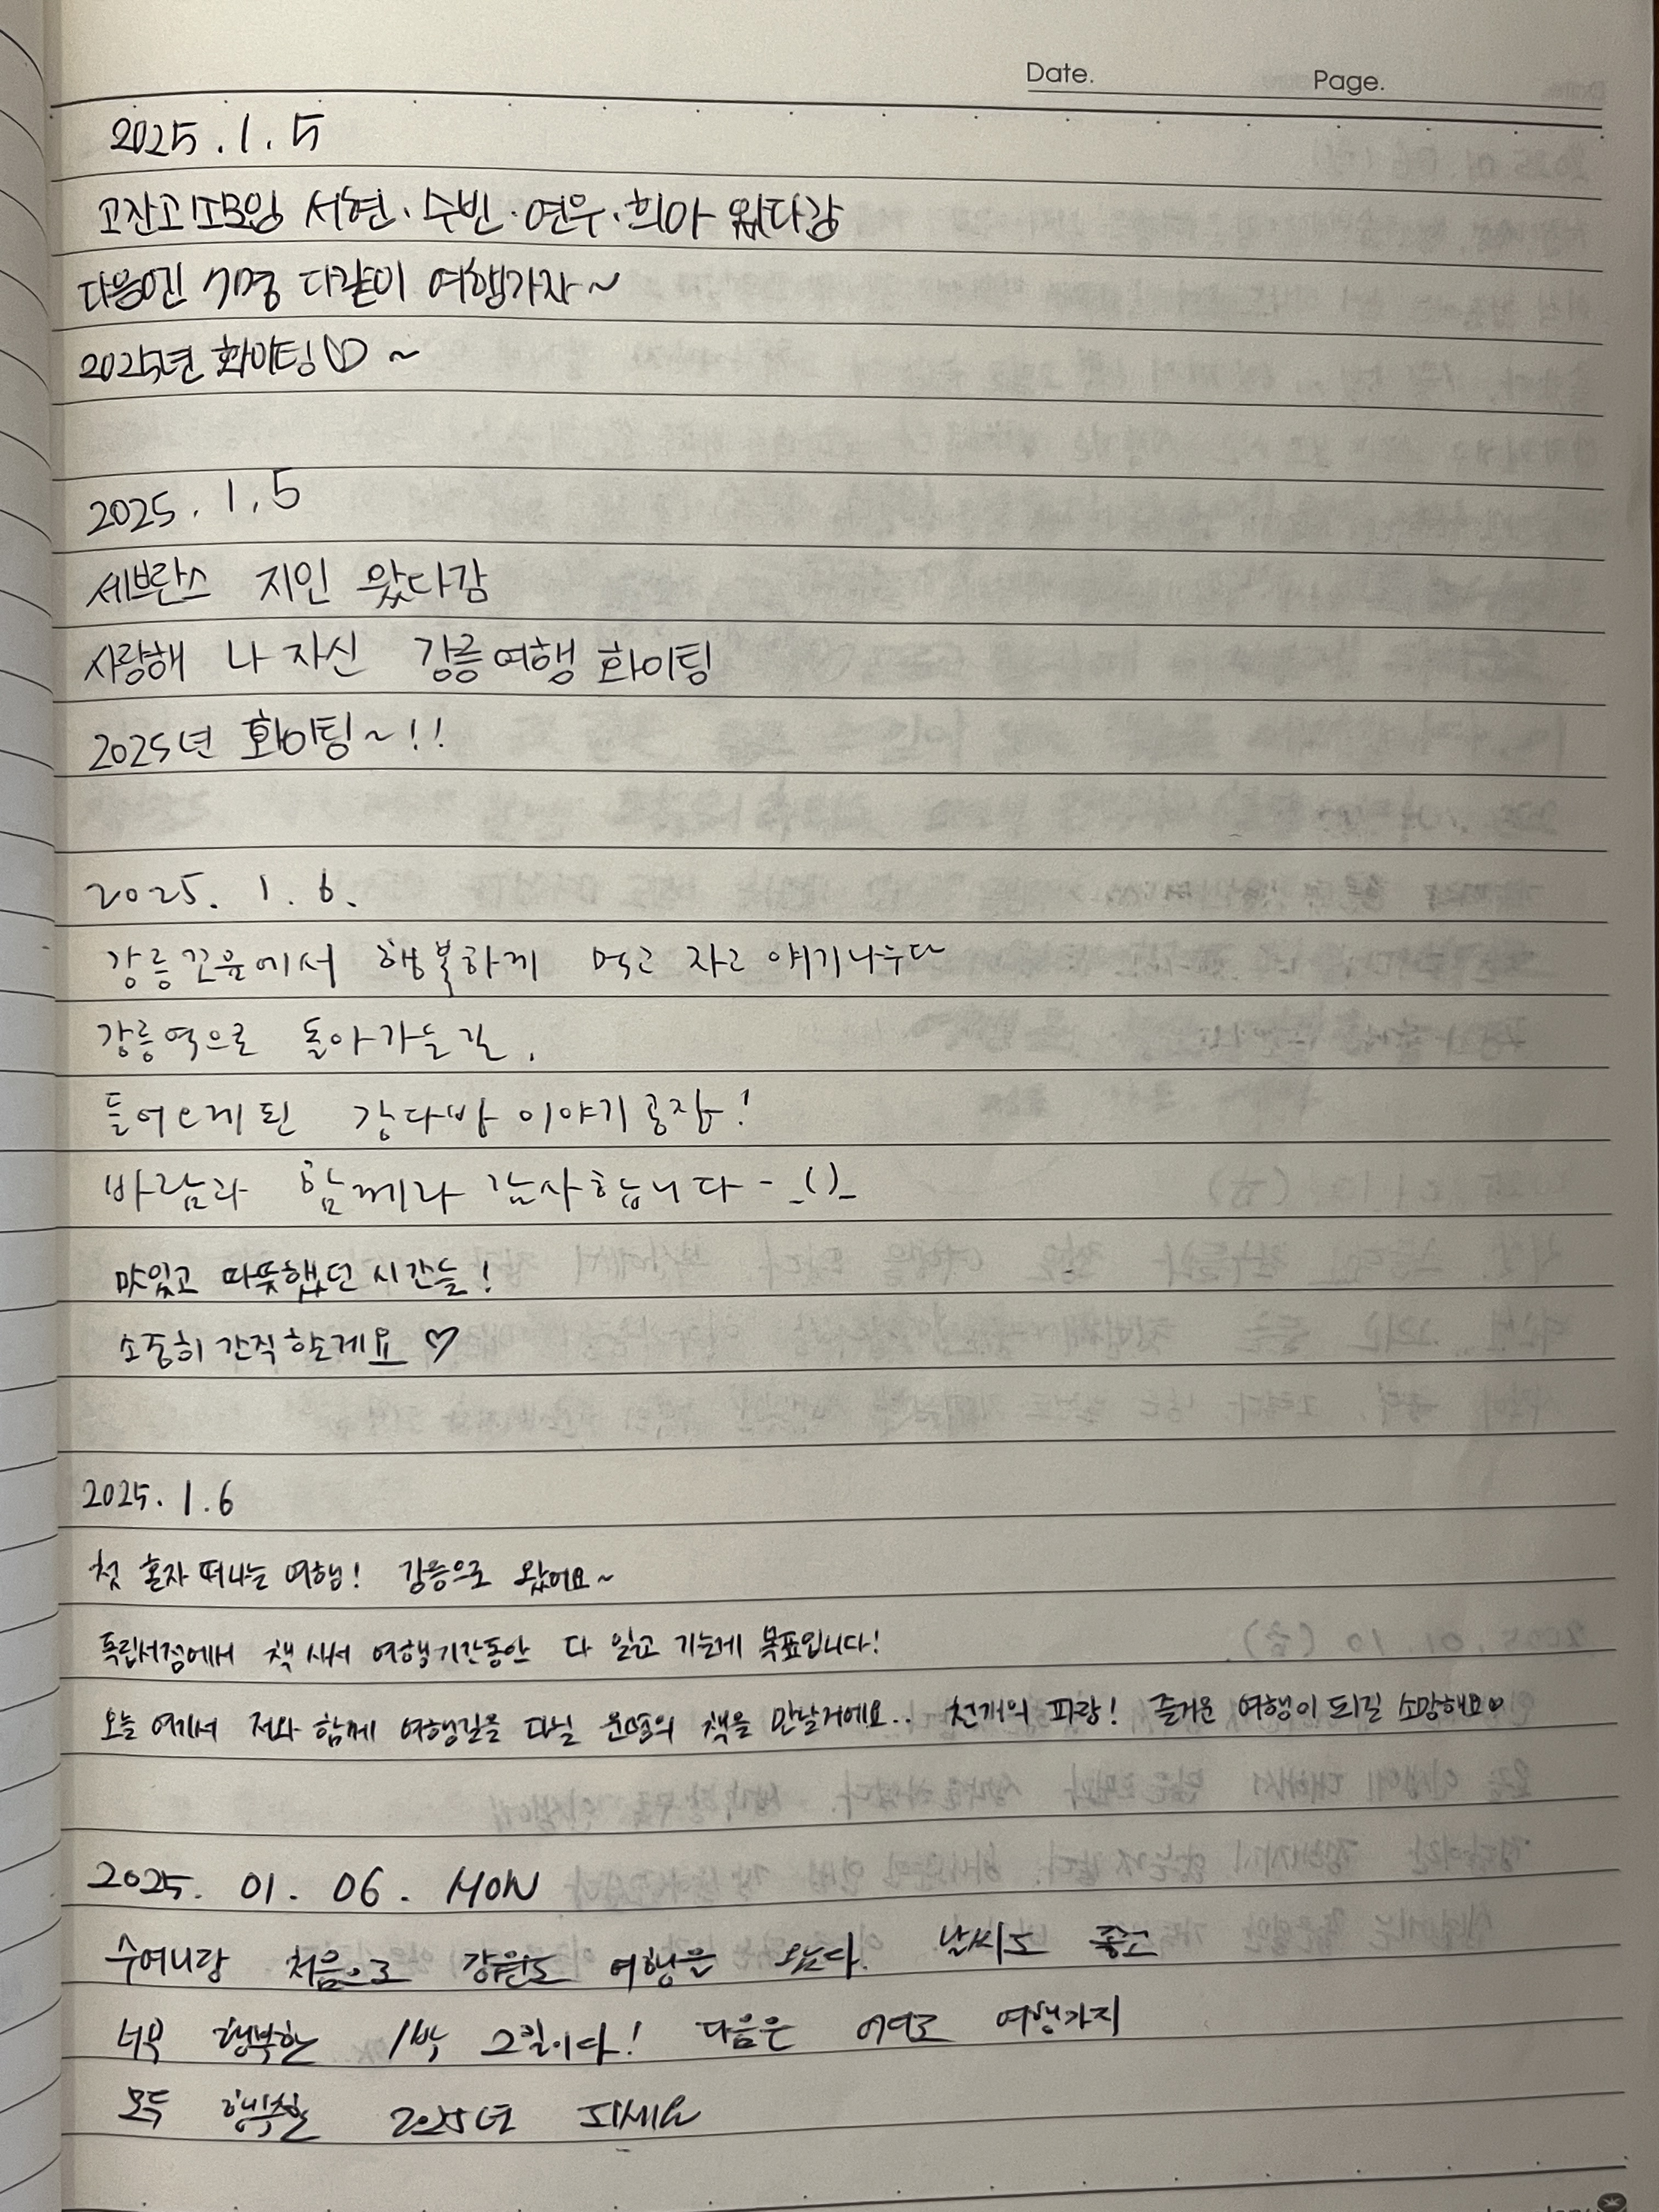 Date. Page.
2025.1.5
고잔고 모임 서현·수빈·연우·희아 왔다감
다음엔 7명 다같이 여행가자~
2025년 화이팅♡~
2025. 1.5
세브란스 지인 왔다감
사랑해 나 자신 강릉여행 화이팅
2025년 화이팅~!!
2025. 1. 6.
강릉 에서 행복하게 먹고 자고 얘기나누다
강릉역으로 돌아가는 길,
들어오게 된 강다방 이야기공장!
바람과 함께라 감사합니다-_()_
맛있고 따뜻했던 시간들!
소중히 간직할게요 ♡
2025. 1. 6
첫 혼자 떠나는 여행! 강릉으로 왔어요~
독립서점에서 책 사서 여행기간동안 다 읽고 가는게 목표입니다!
오늘 여기서 저와 함께 여행길을 다닐 운명의 책을 만날거에요.. 천개의 파랑! 즐거운 여행이 되길 소망해요♡
2025. 01. 06. MON
수여니랑 처음으로 강원도 여행을 왔다. 날씨도 좋고
너무 행복한 1박 2일이다! 다음은 여행가지
모두 행복한 2025년 되세요